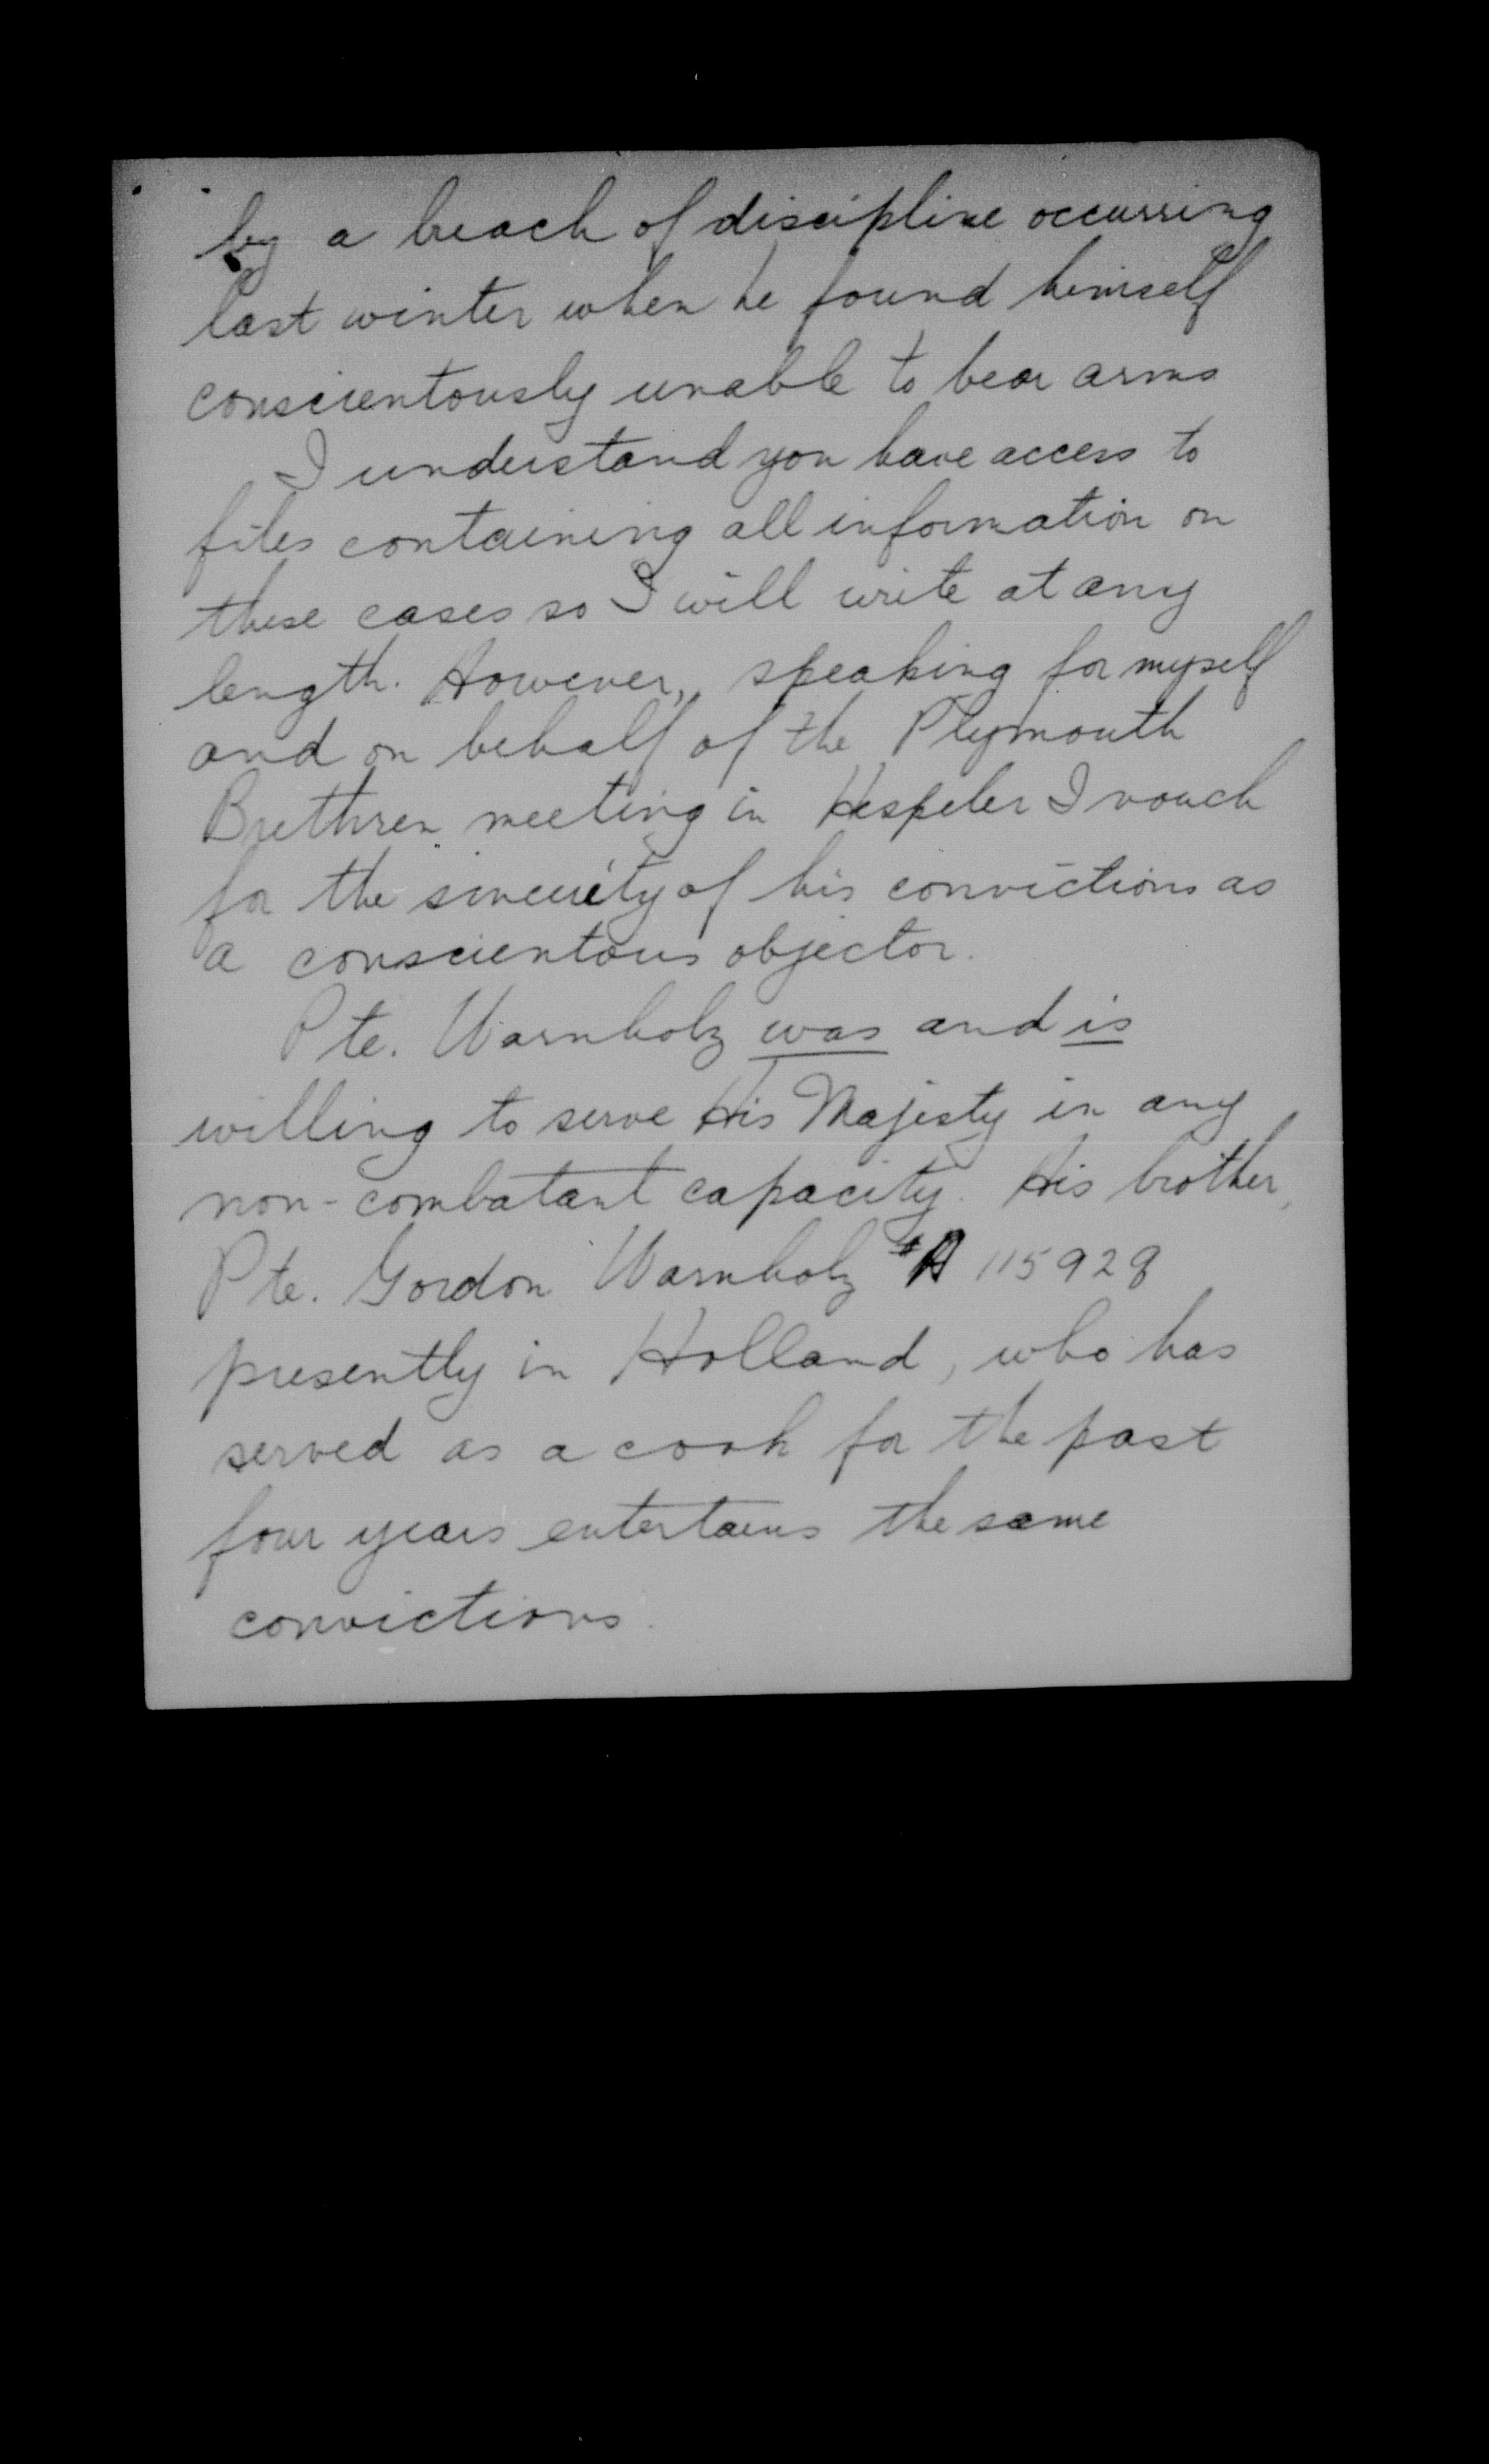 by a breach of discipline occurring
last winter when he found himself
conscientously unable to bear arms
I understand you have access to
files containing all information on
these cases so I will write at any
length. However, speaking for myself
and on behalf of the Plymouth
Brethren meeting in Hespeler I vouch
for the sincerity of his convictions as
a conscientous objector.
Pte. Warnholz was and is
willing to serve His Majesty in any
non-combatant capacity. His brother,
Pte. Gordon Warnholz #A 115928
presently in Holland, who has
served as a cook for the past
four years entertains the same
convictions.